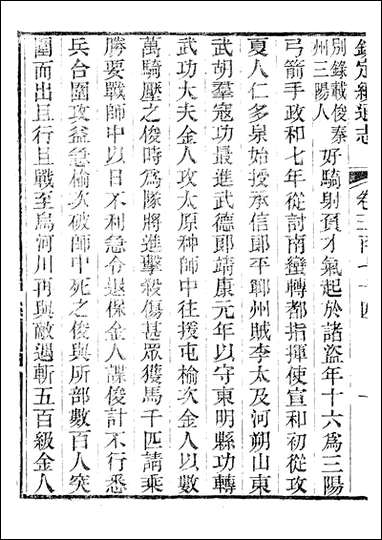 欽定續通志 卷三百七十四
別錄載俊秦
州三陽人 好騎射負才氣起於諸盜年十六爲三陽
弓箭手政和七年從討南蠻轉都指揮使宣和初從攻
夏人仁多泉始授承信郎平鄆州賊李太及河朔山東
武胡羣寇功最進武德郎靖康元年以守東明縣功轉
武功大夫金人攻太原种師中往援屯榆次金人以數
萬騎壓之俊時爲隊將進擊殺傷甚眾獲馬千匹請乘
勝要戰師中以日不利急令退保金人諜俊計不行悉
兵合圍攻益急榆次破師中死之俊與所部數百人突
圍而出且行且戰至烏河川再與敵遇斬五百級金人